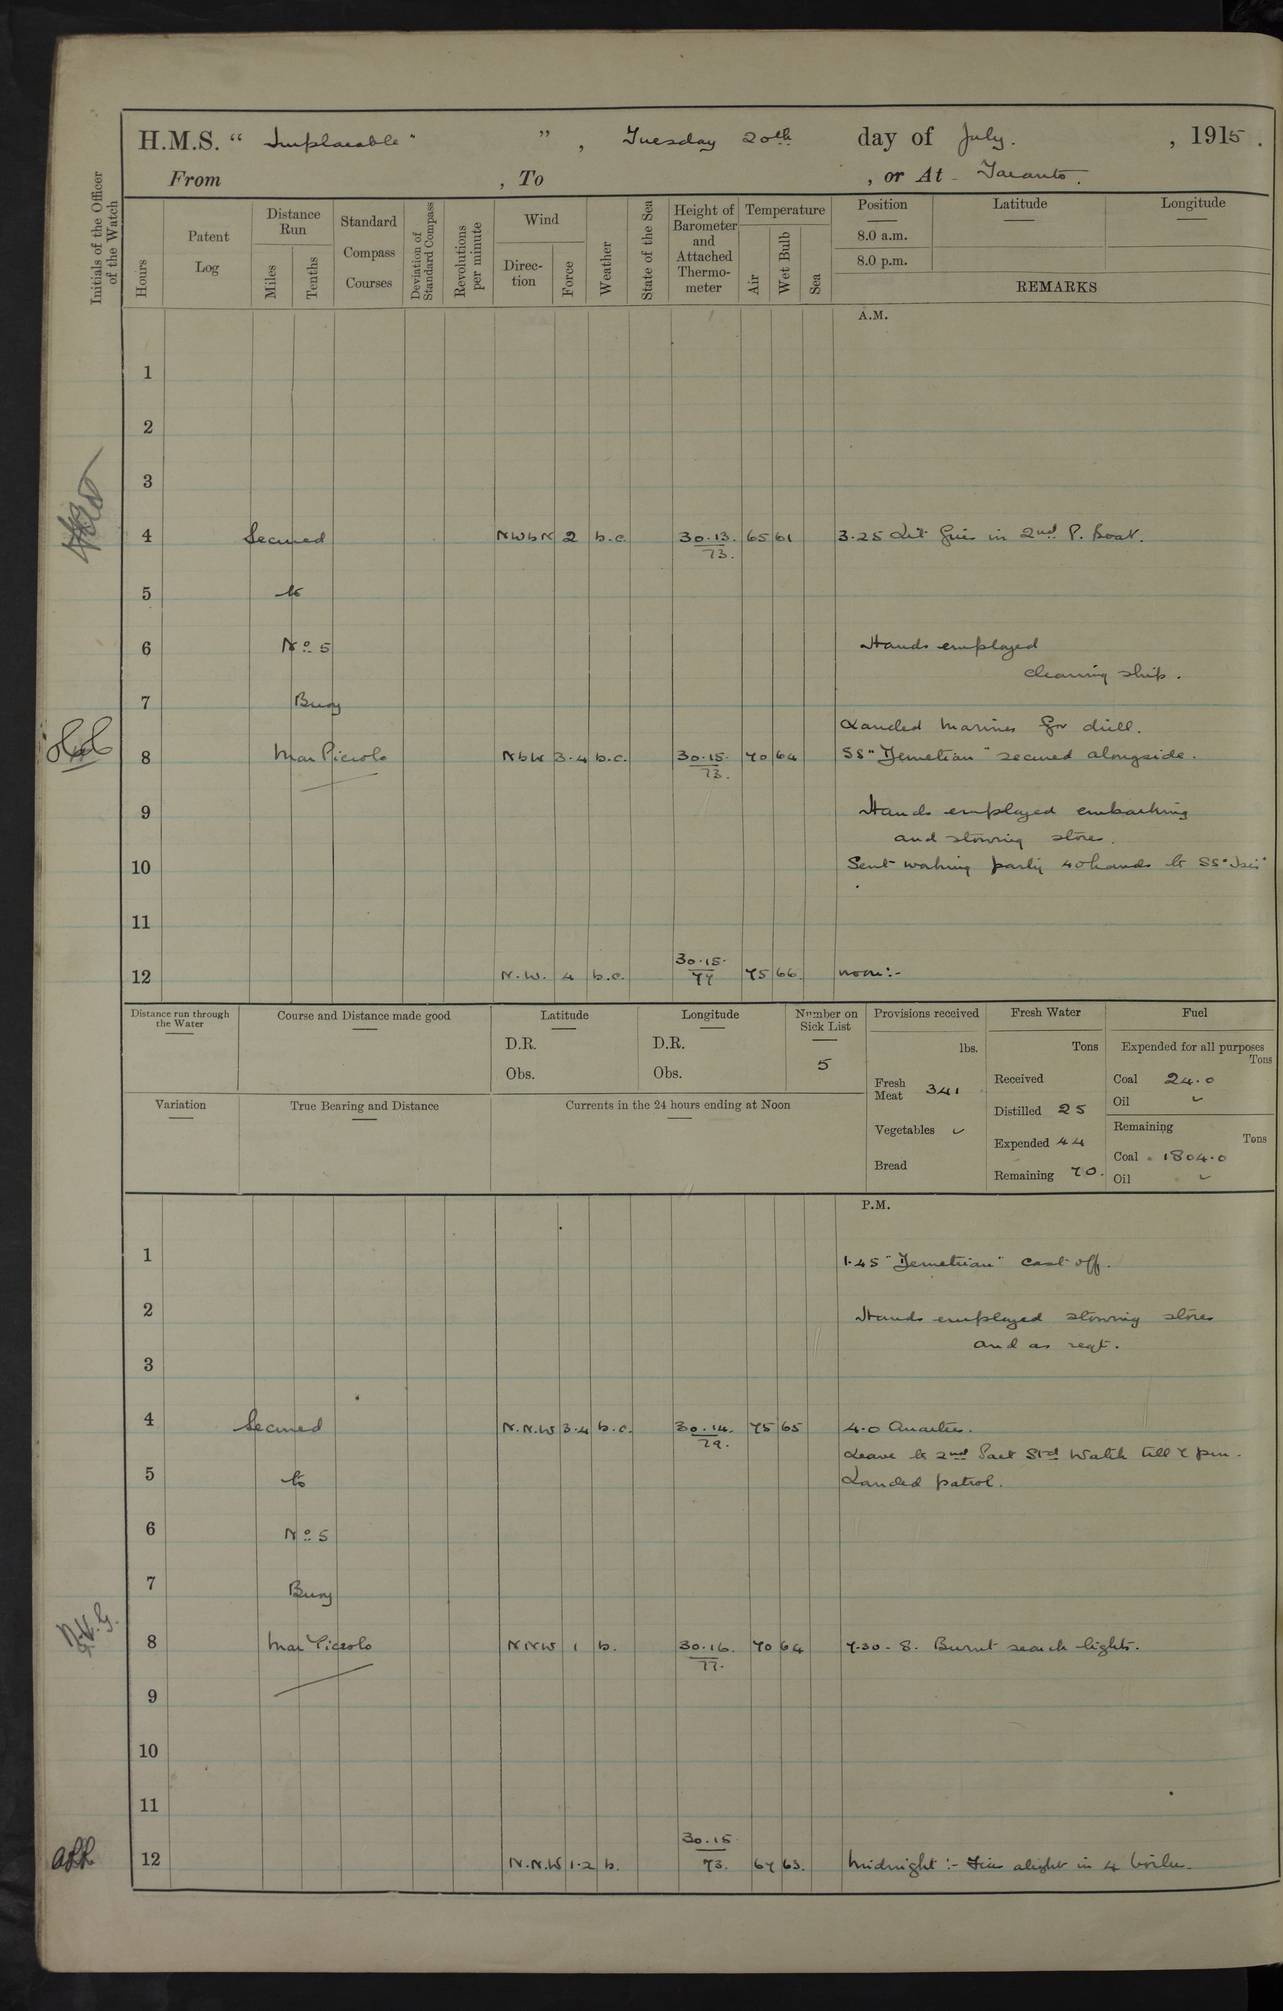 H.M.S. " Implacable " ", Tuesday 20th day of July. , 1915.
From , To , or At - Taranto.
Initials of the Officer of the Watch
Hours
Patent Log
Distance Run
Miles
Tenths
Standard Compass Courses
Deviation of Standard Compass
Revolutions per minute
Wind
Direction
Force
Weather
State of the Sea
Height of Barometer and Attached Thermometer
Temperature
Air
Wet Bulb
Sea
Position
8.0 a.m.
8.0 p.m.
Latitude
Longitude
REMARKS
A.M.
1
2
3
4 Secured NWbN 2 b.c. 30.13. 65 61 3.25 Lit fires in 2nd P. Boat.
73.
5 to
6 No 5 Hands employed
cleaning ship.
7 Buoy
Landed Marines for drill.
8 Mar Piccolo NbW 3.4 b.c. 30.15. 70 64 SS "Demetian" secured alongside.
73.
9 Hands employed embarking
and stowing stores.
10 Sent working party 40 hands to SS "Isis"
11
12 N.W. 4 b.c. 30.15. 75 66. noon:-
77
Distance run through the Water
Course and Distance made good
Latitude
D.R.
Obs.
Longitude
D.R.
Obs.
Number on Sick List
5
Provisions received
lbs.
Fresh Meat 341
Vegetables ✓
Bread
Fresh Water
Tons
Received
Distilled 25
Expended 44
Remaining 70.
Fuel
Expended for all purposes
Tons
Coal 24.0
Oil ✓
Remaining
Tons
Coal 1804.0
Oil ✓
Variation
True Bearing and Distance
Currents in the 24 hours ending at Noon
P.M.
1 1.45 "Demetian" cast off.
2 Hands employed stowing stores
and as reqt.
3
4 Secured N.N.W 3.4 b.c. 30.14. 75 65 4.0 Quarters.
79.
Leave to 2nd Part Stbd Watch till 7 pm.
5 to Landed patrol.
6 No 5
7 Buoy
8 Mar Piccolo NNW 1 b. 30.16. 70 64 7.30 - 8. Burnt search lights.
77.
9
10
11
12 N.N.W 1.2 b. 30.15 67 63. Midnight:- Fires alight in 4 boilers.
73.